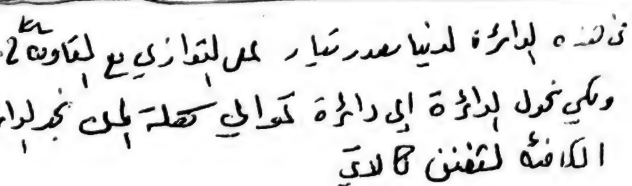 في هذه الدائرة لدينا مصدر تيار على التوازي مع المقاومة 2kΩ
ولكي نحول الدائرة إلى دائرة توالي سهلة الحل نجد الدا
المكافئة لثفنن كالآتي